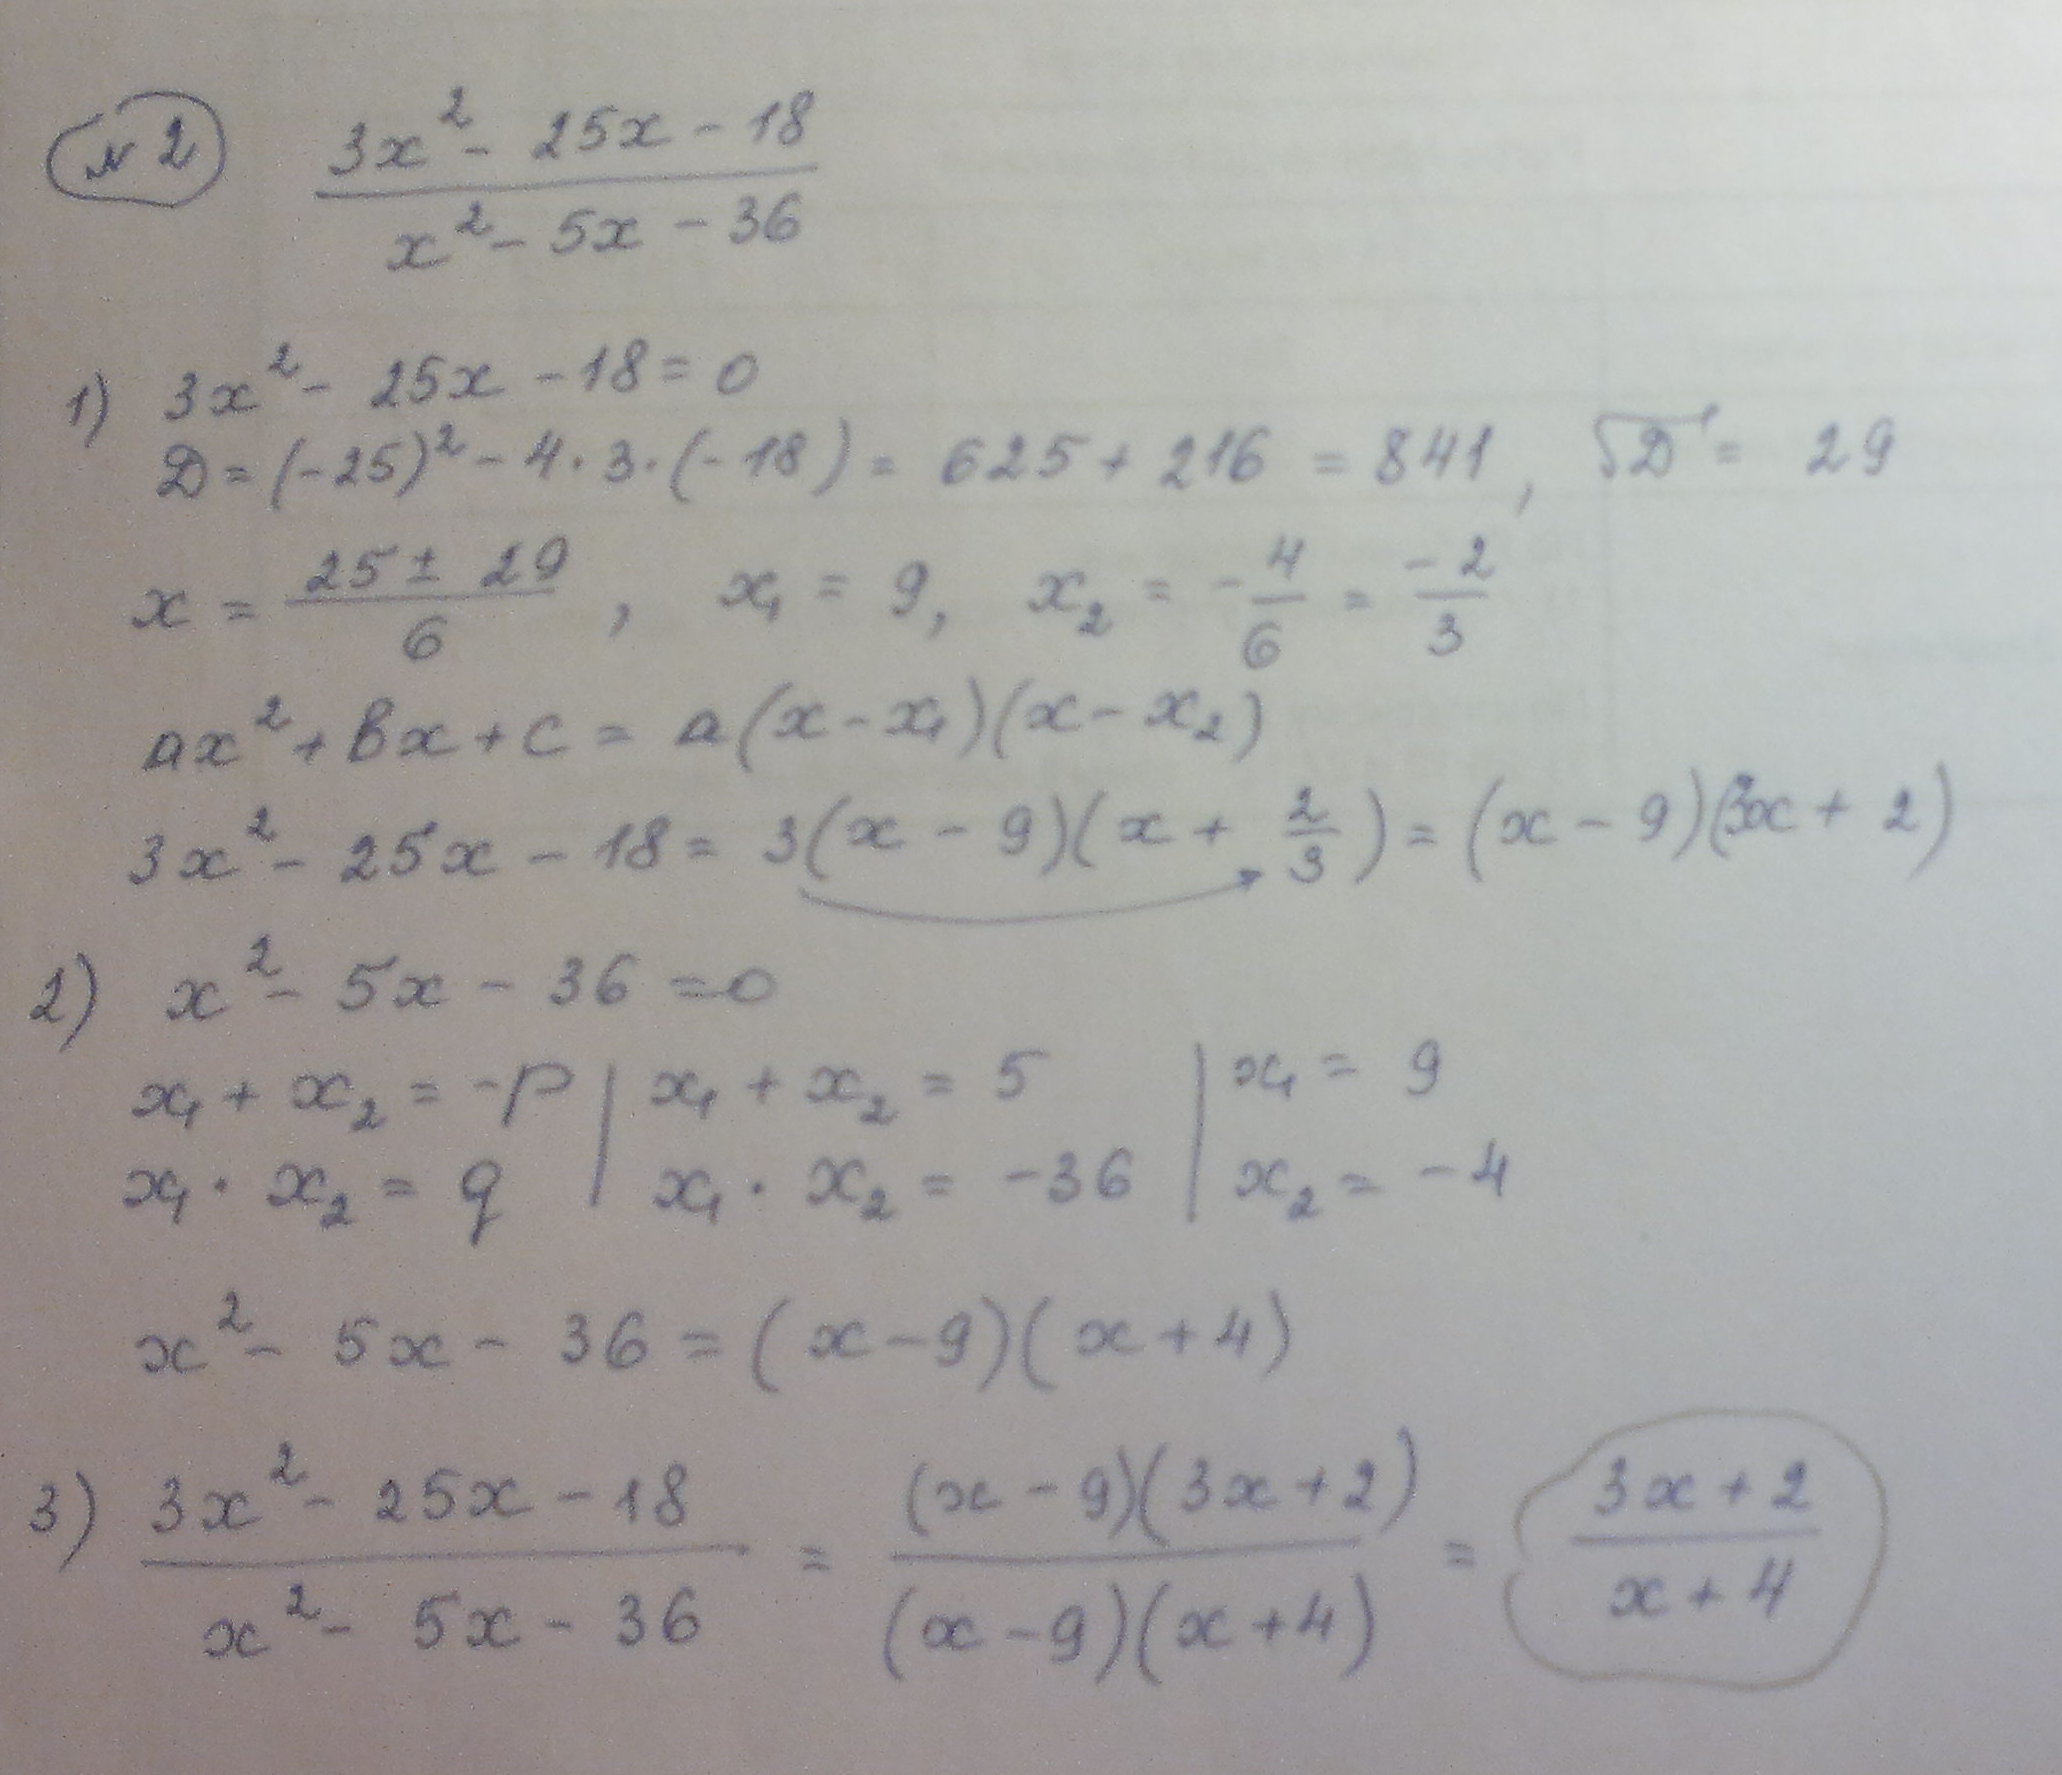 N 2 (3x² - 25x - 18)/(x² - 5x - 36)
1) 3x² - 25x - 18 = 0
D = (-25)² - 4 · 3 · (-18) = 625 + 216 = 841, √D = 29
x = (25 ± 29)/6, x₁ = 9, x₂ = -4/6 = -2/3
ax² + bx + c = a(x - x₁)(x - x₂)
3x² - 25x - 18 = 3(x - 9)(x + 2/3) = (x - 9)(3x + 2)
2) x² - 5x - 36 = 0
x₁ + x₂ = -p | x₁ + x₂ = 5 | x₁ = 9
x₁ · x₂ = q | x₁ · x₂ = -36 | x₂ = -4
x² - 5x - 36 = (x - 9)(x + 4)
3) (3x² - 25x - 18)/(x² - 5x - 36) = ((x - 9)(3x + 2))/((x - 9)(x + 4)) = (3x + 2)/(x + 4)